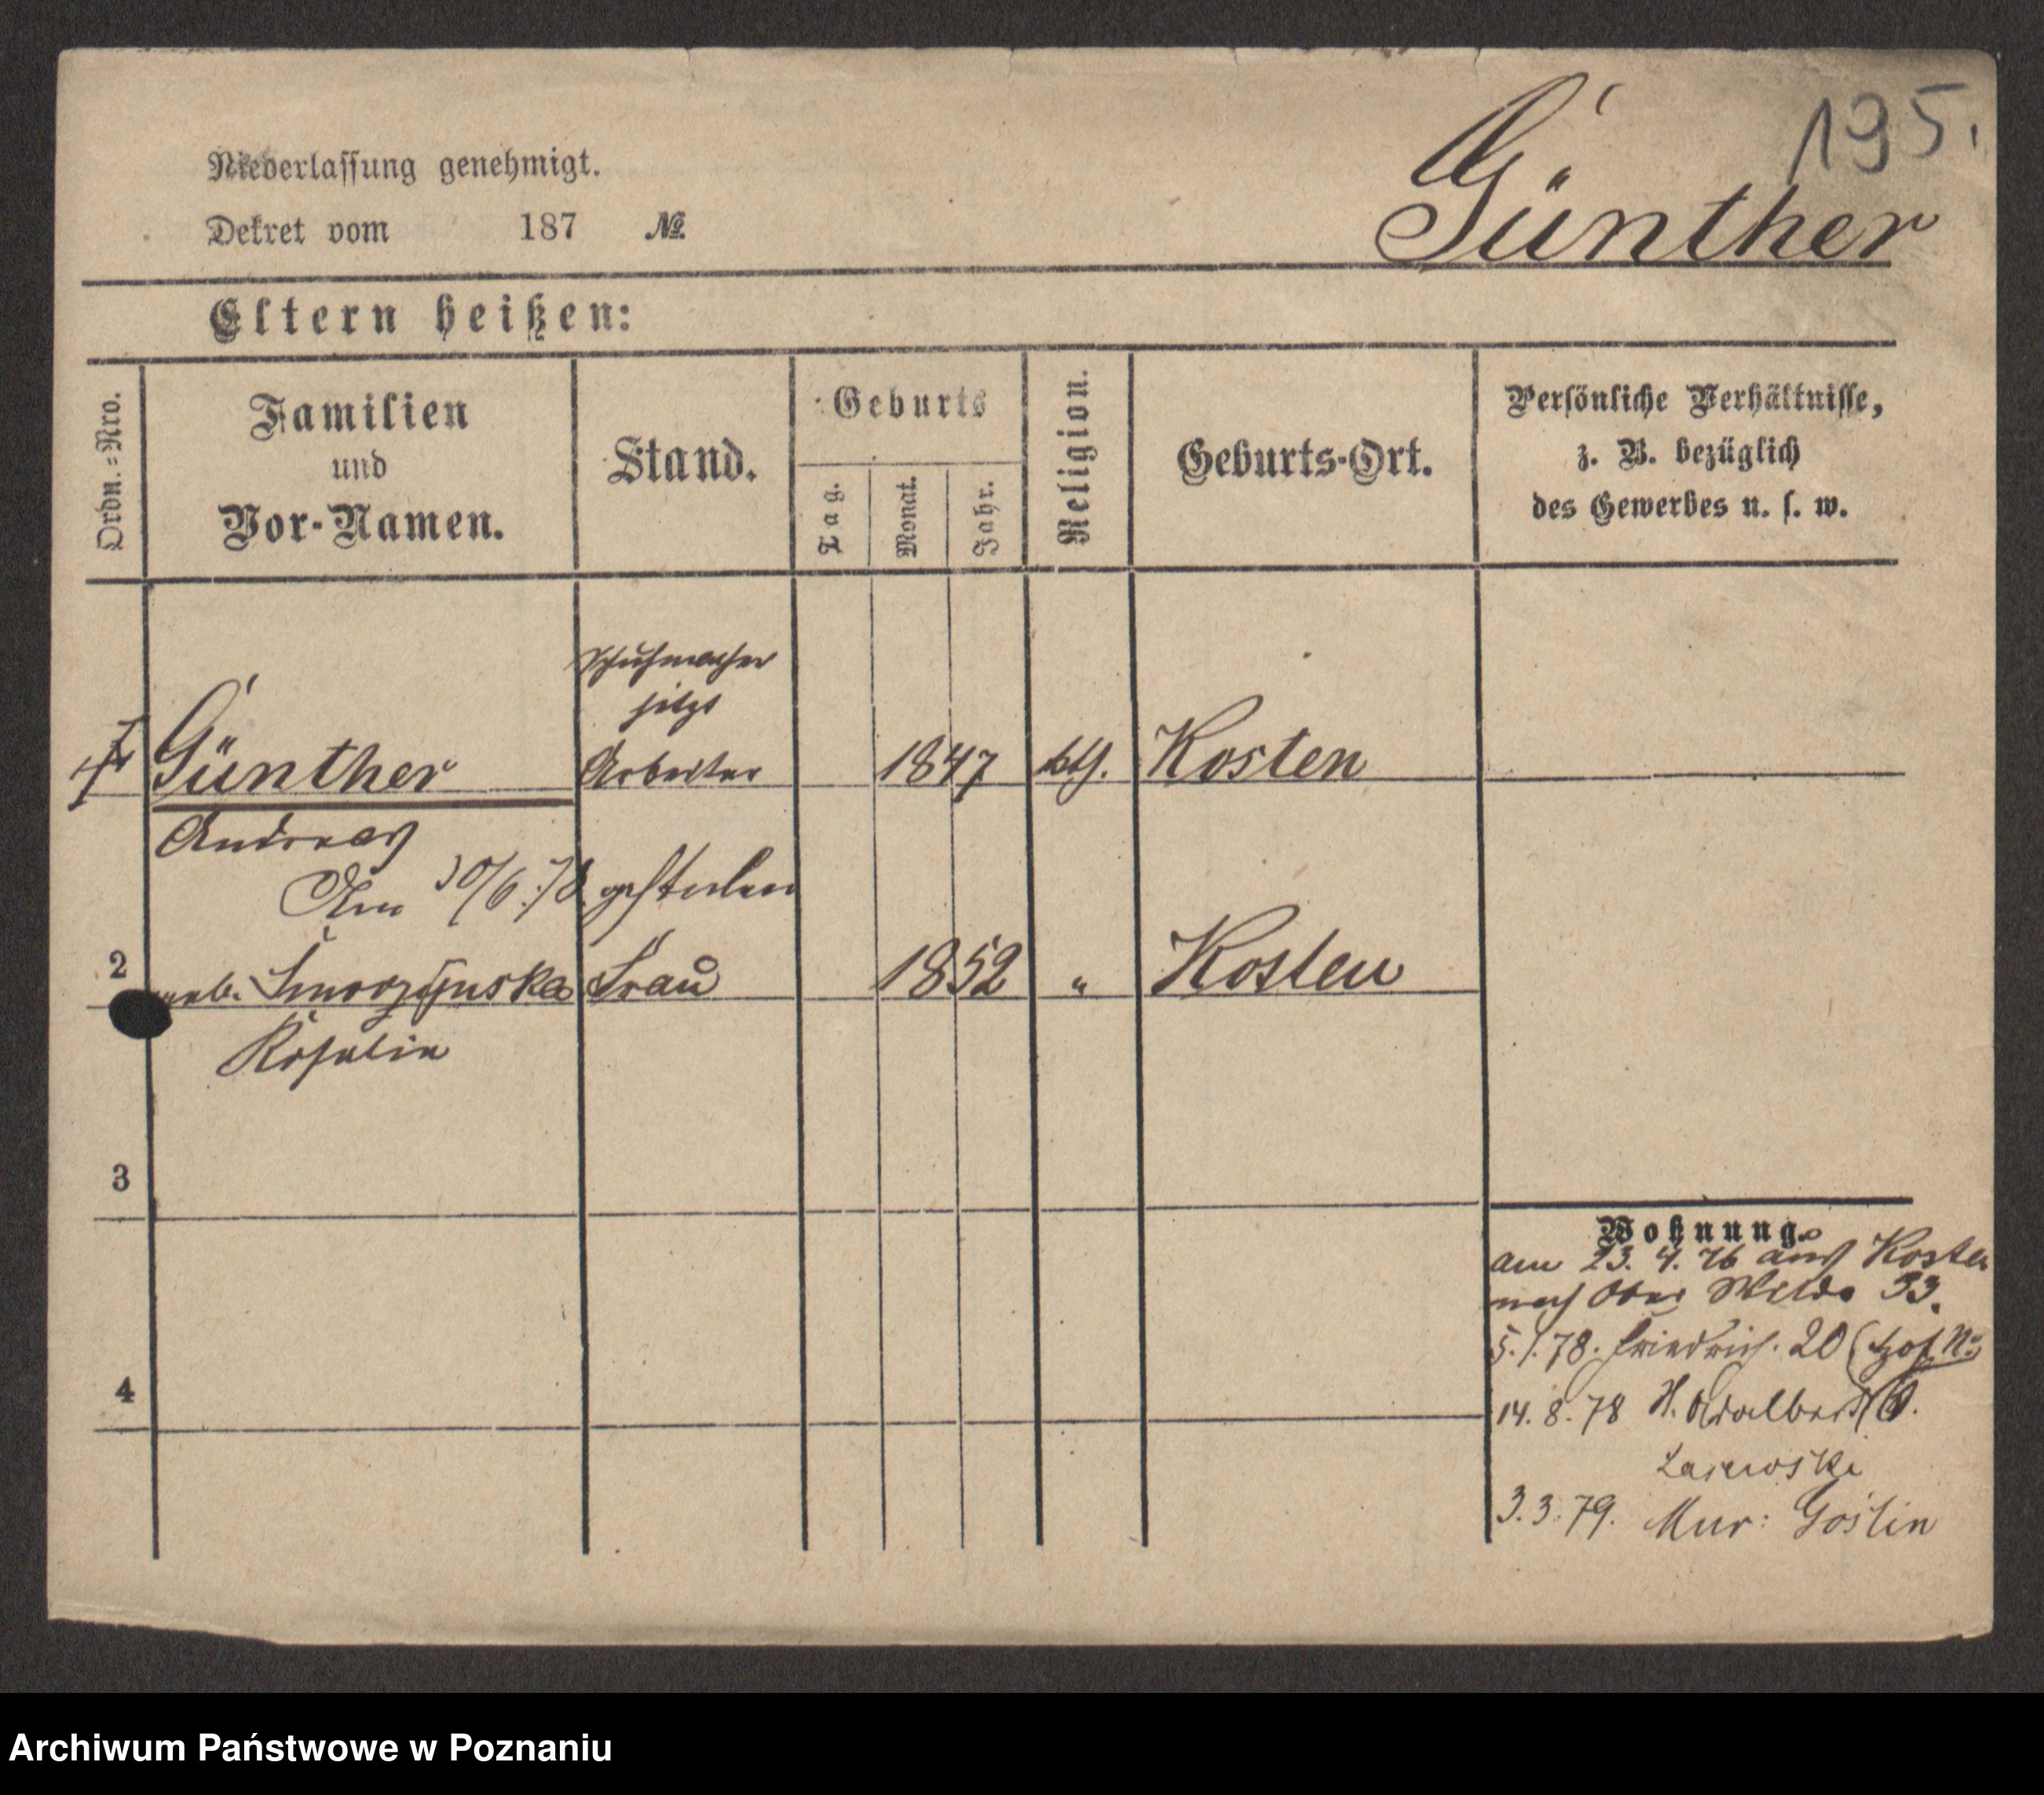 195.
Niederlassung genehmigt.
Dekret vom 187 №
Günther
Eltern heißen:
Ordn.=Nro.
Familien
und
Vor-Namen.
Stand.
Geburts
Tag.
Monat.
Jahr.
Religion.
Geburts-Ort.
Persönliche Verhältnisse,
z. B. bezüglich
des Gewerbes u. s. w.
Schuhmacher
jetzt
Günther Arbeiter 1847 kth. Kosten
Andreas
Am 30/6.78 gestorben
2 geb. Smorzynska Frau 1852 " Kosten
Rosalie
3
4
Wohnung.
am 23. 4. 76 aus Kosten
nach Ober Wilda 33.
5.1.78. Friedrich. 20 (Hof. N:
14. 8. 78 St. Adalbert
Lajewski
3.3.79. Mur: Goslin
Archiwum Państwowe w Poznaniu